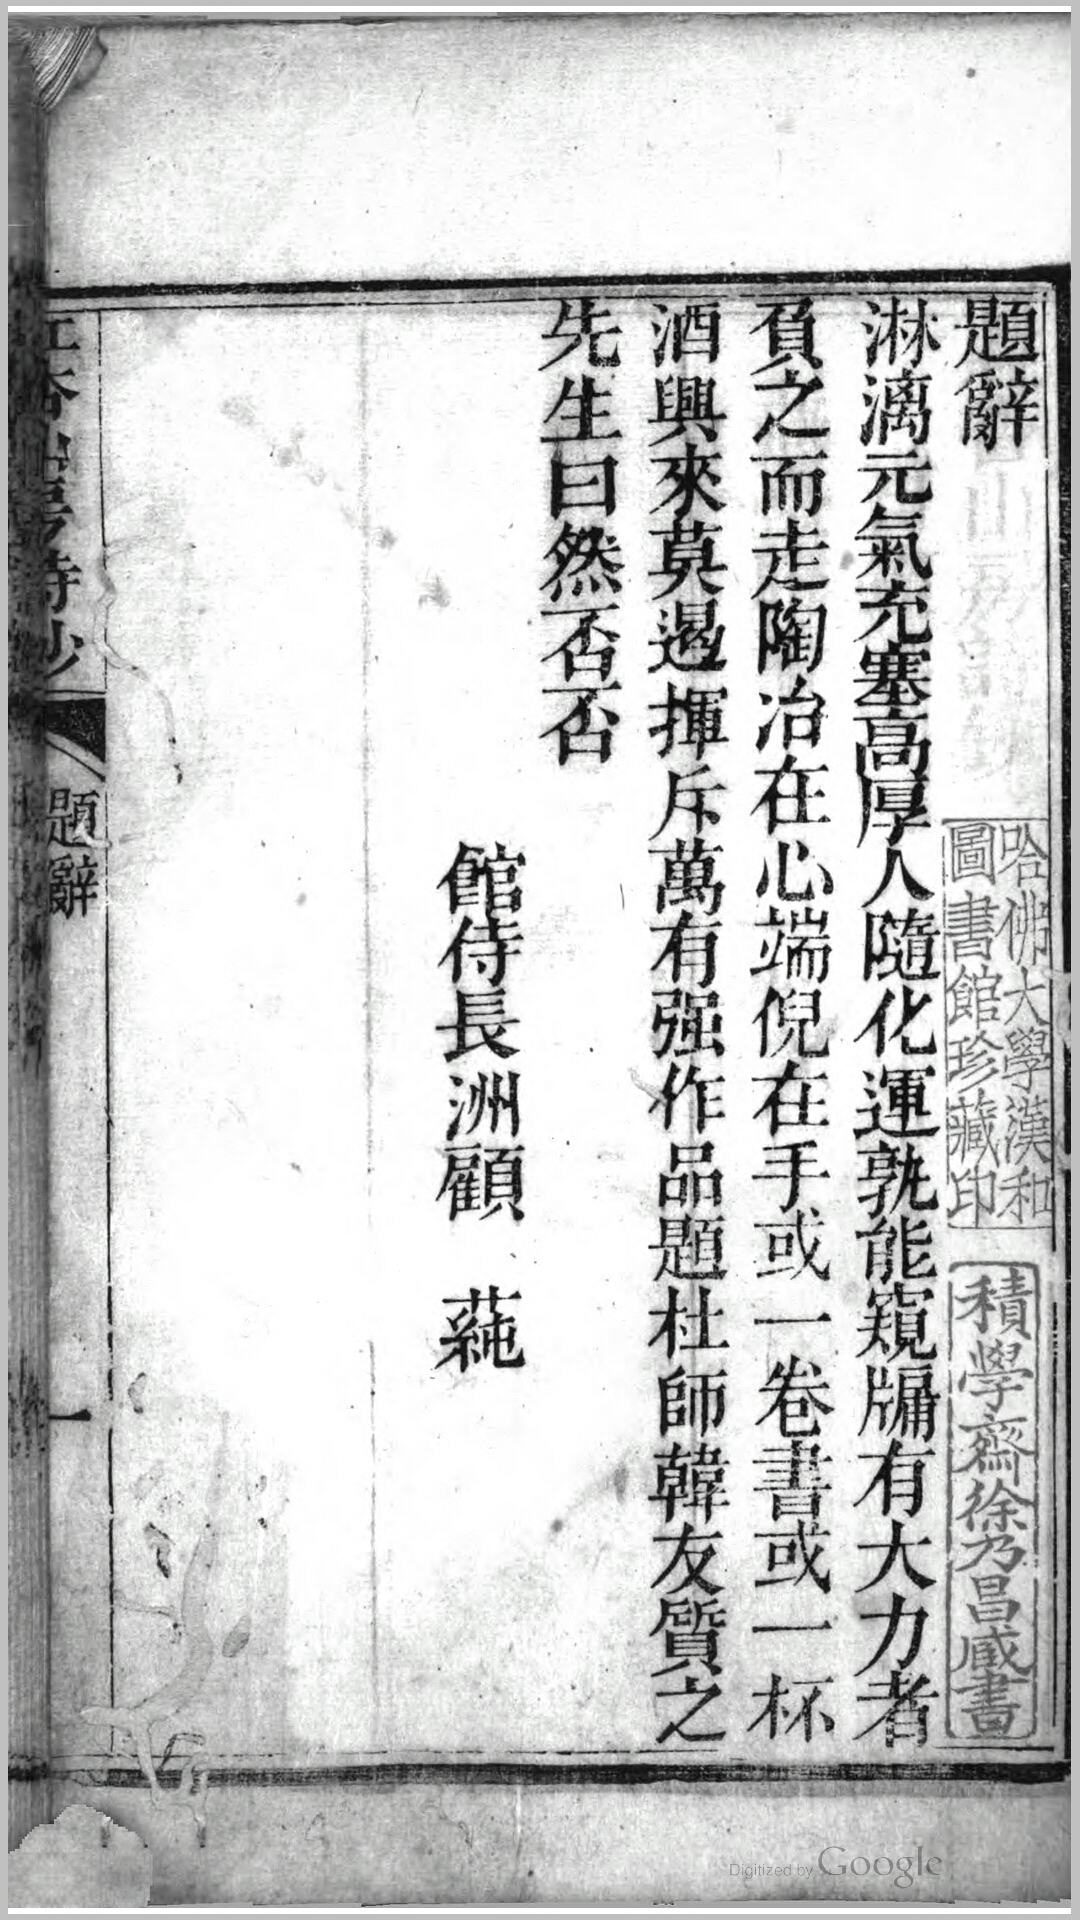 題辭
淋漓元氣充塞高厚人隨化運孰能窺牖有大力者
負之而走陶冶在心端倪在手或一卷書或一杯
酒興來莫遏揮斥萬有强作品題杜師韓友質之
先生曰然否否
館侍長洲顧 蒓
哈佛大學漢和
圖書館珍藏印
積學齋徐乃昌藏書
杏 詩鈔
題辭
一
Digitized by Google